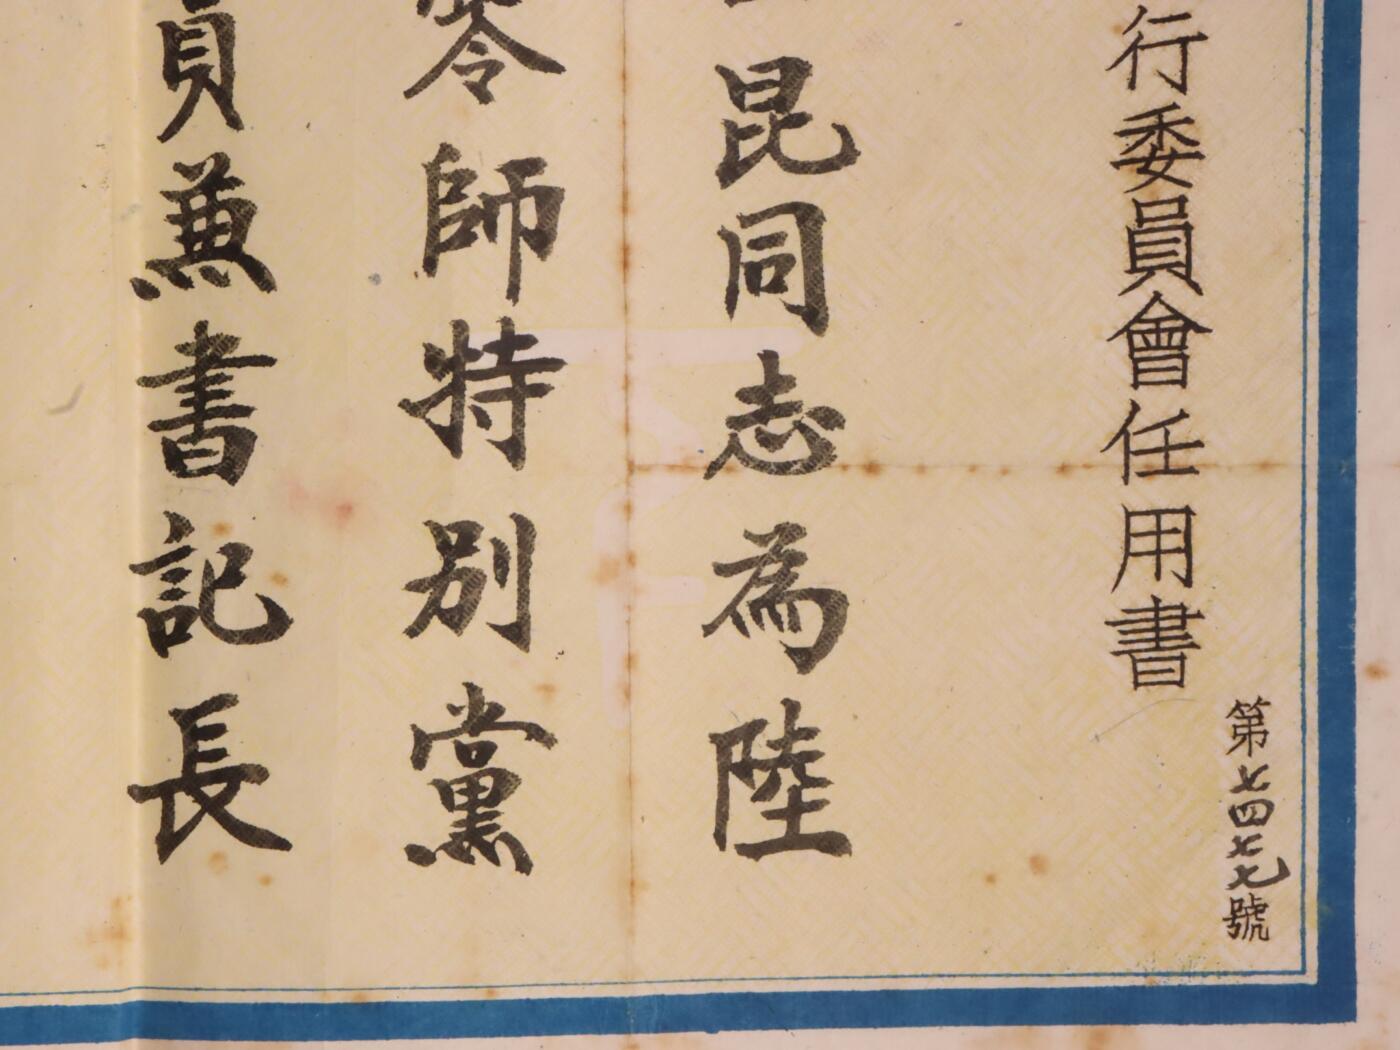 第七四七七號
行委員會任用書
昆同志為陸
零師特別黨
員兼書記長